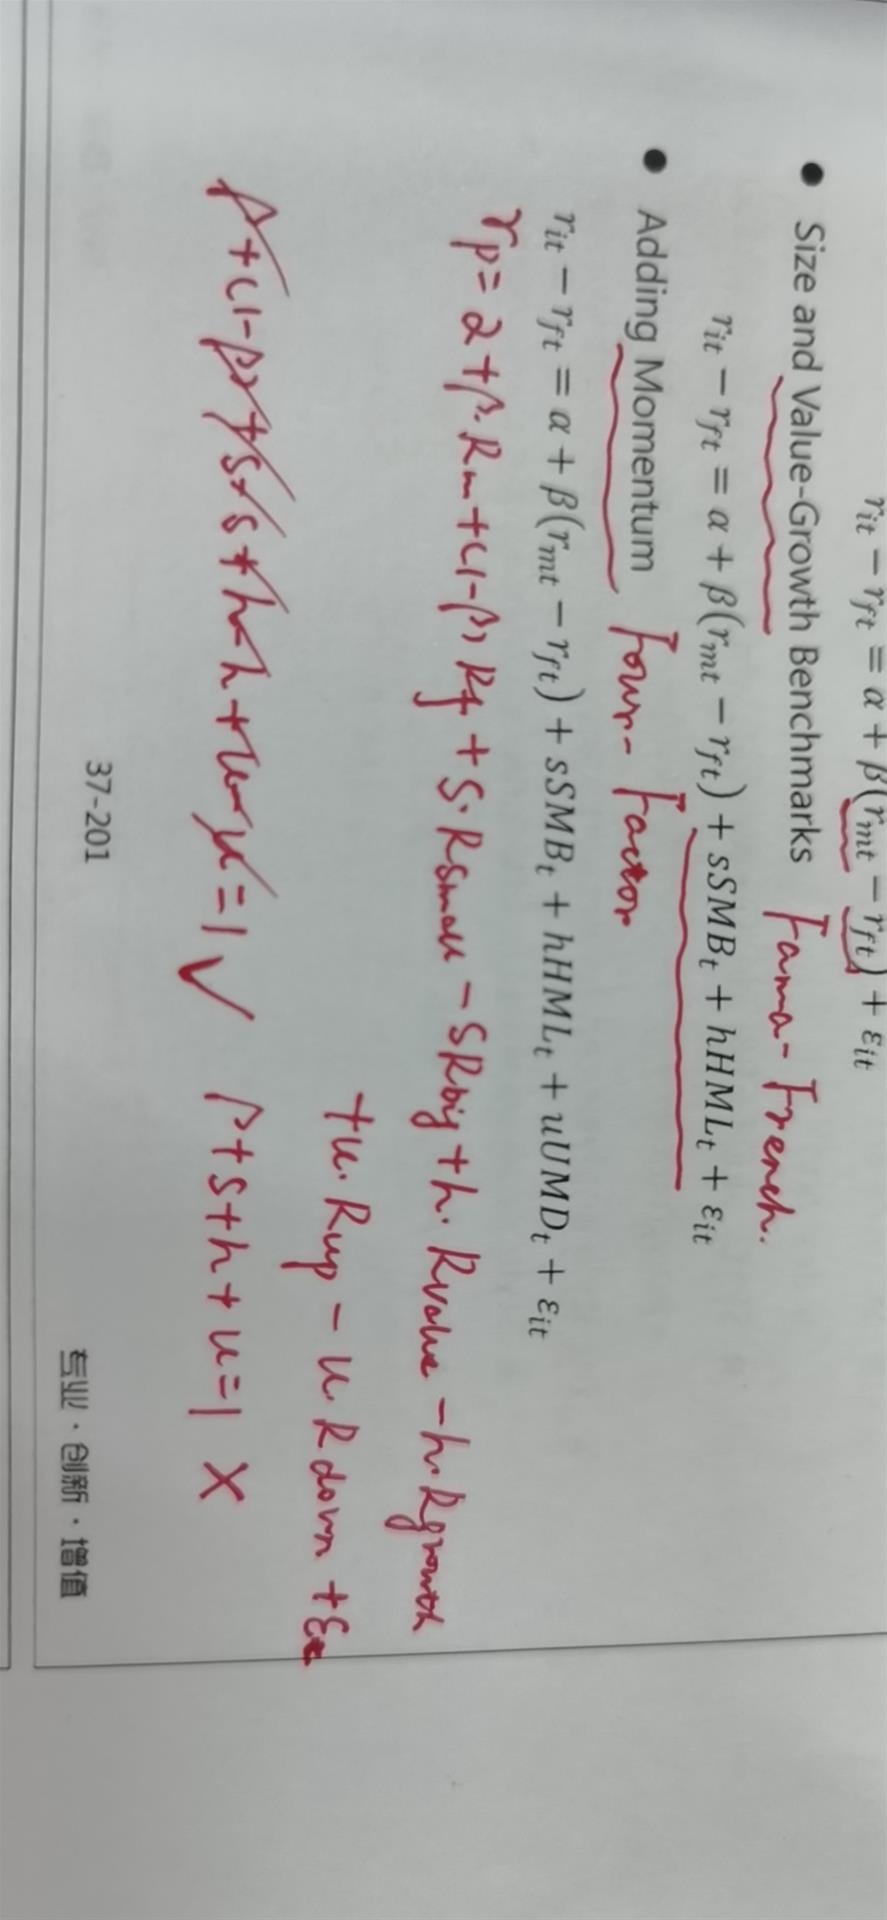 r_{it} − r_{ft} = α + β(r_{mt} − r_{ft}) + ε_{it}
● Size and Value-Growth Benchmarks Fama-French.
r_{it} − r_{ft} = α + β(r_{mt} − r_{ft}) + sSMB_t + hHML_t + ε_{it}
● Adding Momentum Four-Factor
r_{it} − r_{ft} = α + β(r_{mt} − r_{ft}) + sSMB_t + hHML_t + uUMD_t + ε_{it}
r_p = α + β·R_m + (1-β) R_f + S·R_{small} − S R_{big} + h·R_{value} − h·R_{growth}
+ u·R_{up} − u·R_{down} + ε
β + (1-β) + s - s + h - h + u - u = 1 ✓ β + s + h + u = 1 ×
37-201
专业·创新·增值